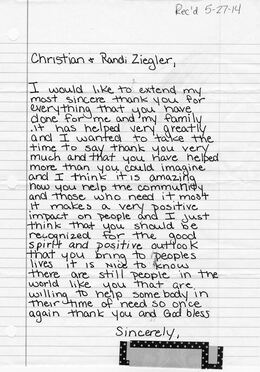 Rec'd 5-27-14
Christian & Randi Ziegler,
I would like to extend my
most sincere thank you for
everything that you have
done for me and my family
it has helped very greatly
and I wanted to take the
time to say thank you very
much and that you have helped
more than you could imagine
and I think it is amazing
how you help the community
and those who need it most
it makes a very positive
impact on people and I just
think that you should be
recognized for the good
spirit and positive outlook
that you bring to peoples
lives it is nice to know
there are still people in the
world like you that are
willing to help somebody in
their time of need so once
again thank you and God bless
Sincerely,